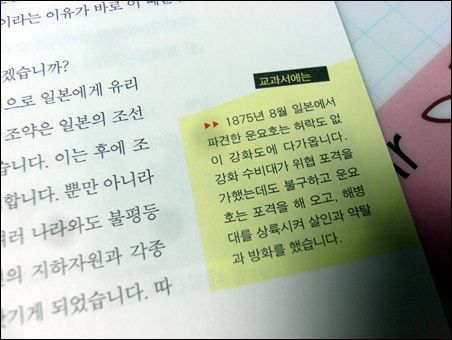 이라는 이유가 바로 이 때문
겠습니까?
으로 일본에게 유리
조약은 일본의 조선
습니다. 이는 후에 조
합니다. 뿐만 아니라
러 나라와도 불평등
의 지하자원과 각종
기게 되었습니다. 따
교과서에는
▶▶ 1875년 8월 일본에서
파견한 운요호는 허락도 없
이 강화도에 다가옵니다.
강화 수비대가 위협 포격을
가했는데도 불구하고 운요
호는 포격을 해 오고, 해병
대를 상륙시켜 살인과 약탈
과 방화를 했습니다.